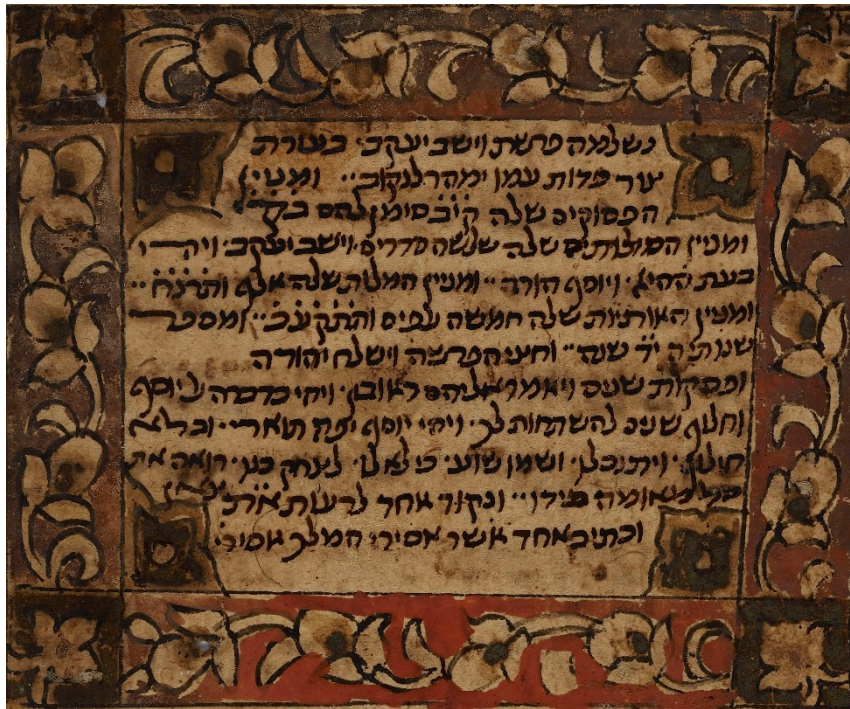 נשלמה פרשת וישב יעקב׳ בעזרת
צור פדות עמו ימהר לנקוב׳׳ ומנין
הפסוקים שלה קי̇ב סימן להם בק̇י̇
ומנין הסדרים שלה שלשה סדרים׳ וישב יעקב׳ ויהי
בעת ההיא׳ ויוסף הורד׳׳ ומנין המלות שלה אלף
ומנין האותיות שלה חמשה אלפים ומספר
שנותיה י̇ד̇ שנה׳׳ וחצי הפרשה וישלח יהודה
ופסקות שנים ויאמר אליהם ראובן׳ ויהי כדברה ליוסף
וחלוף שנים להשתחות לך׳ ויהי יוסף יפה תואר׳׳ ובלא
חילוף׳ ויתנכלו׳ ושמו שוע׳ כי לא לו׳ לצחק בנו׳ רואה את
כל מאומה בידו׳׳ ונקוד אחד לרעות את
וכתיב אחד אשר אסירי המלך אסיר׳